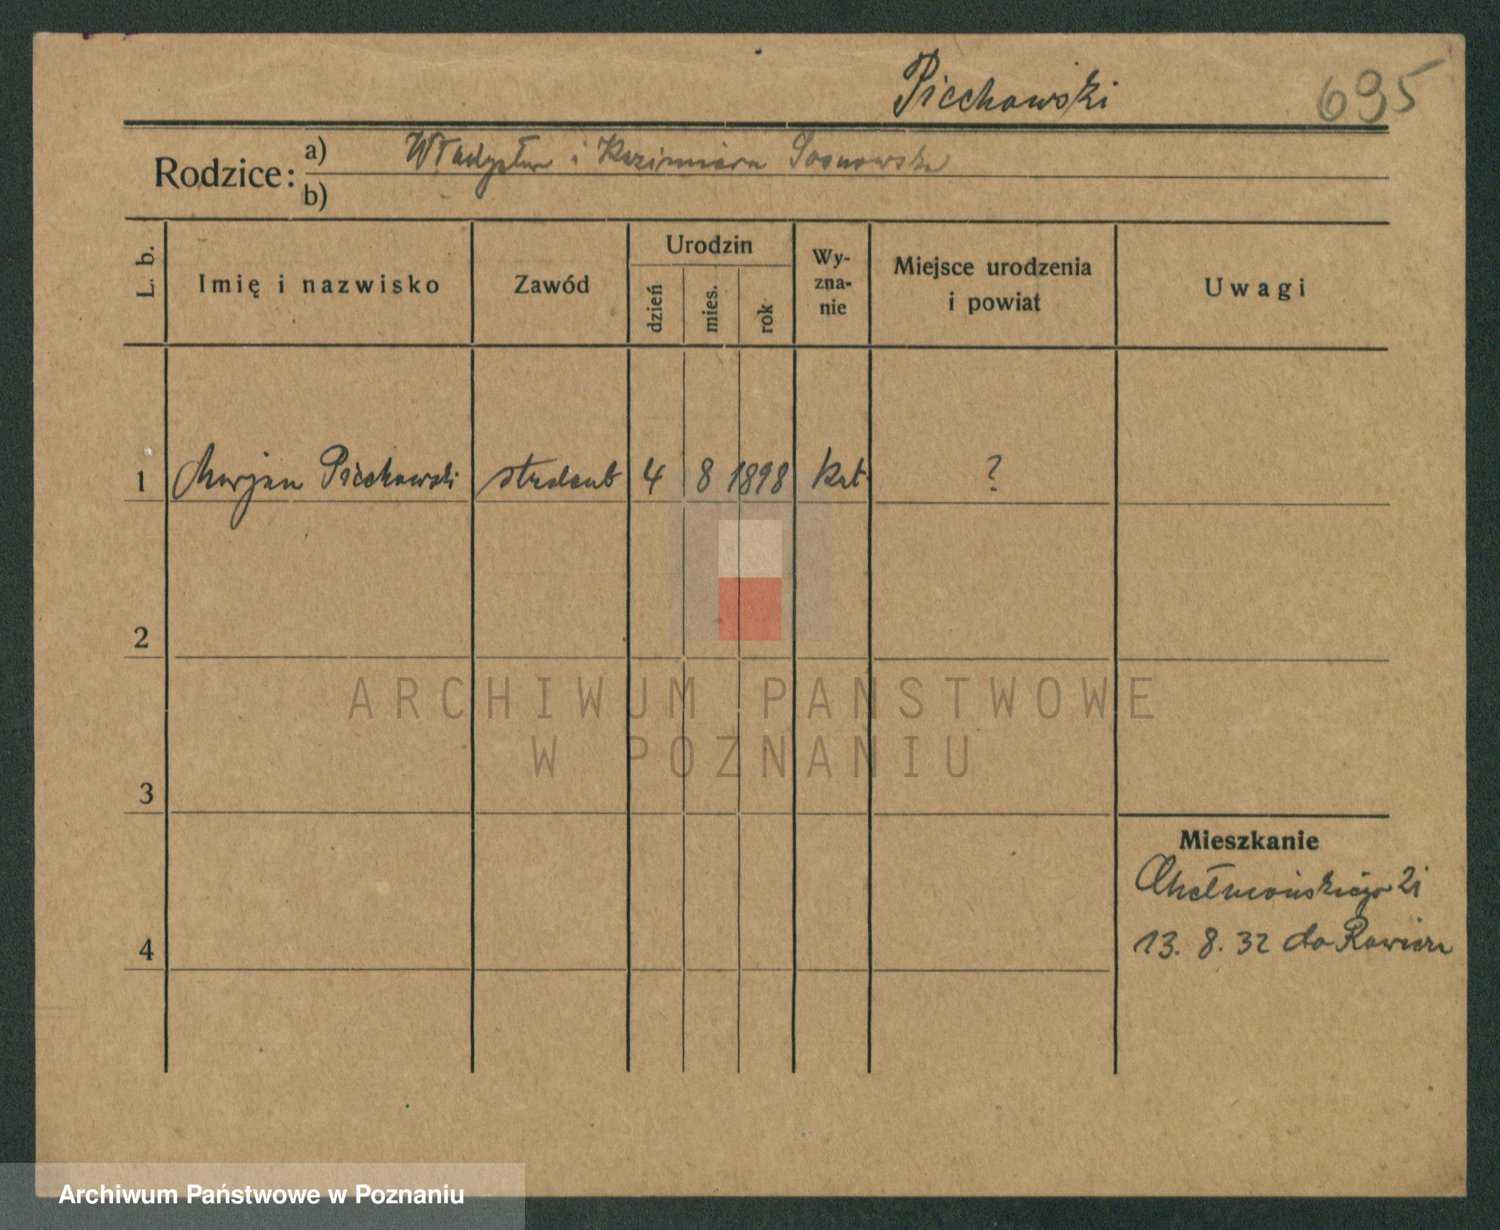 Piechowski 695
Rodzice:
a) Władysław i Kazimiera Sosnowska
b)
L. b.
Imię i nazwisko
Zawód
Urodzin
dzień
mies.
rok
Wy-
zna-
nie
Miejsce urodzenia
i powiat
Uwagi
1 Marjan Piechowski student 4 8 1898 kat. ?
2
ARCHIWUM PAŃSTWOWE
W POZNANIU
3
Mieszkanie
Chełmońskiego 21
4
13. 8. 32 do Rawicza
Archiwum Państwowe w Poznaniu